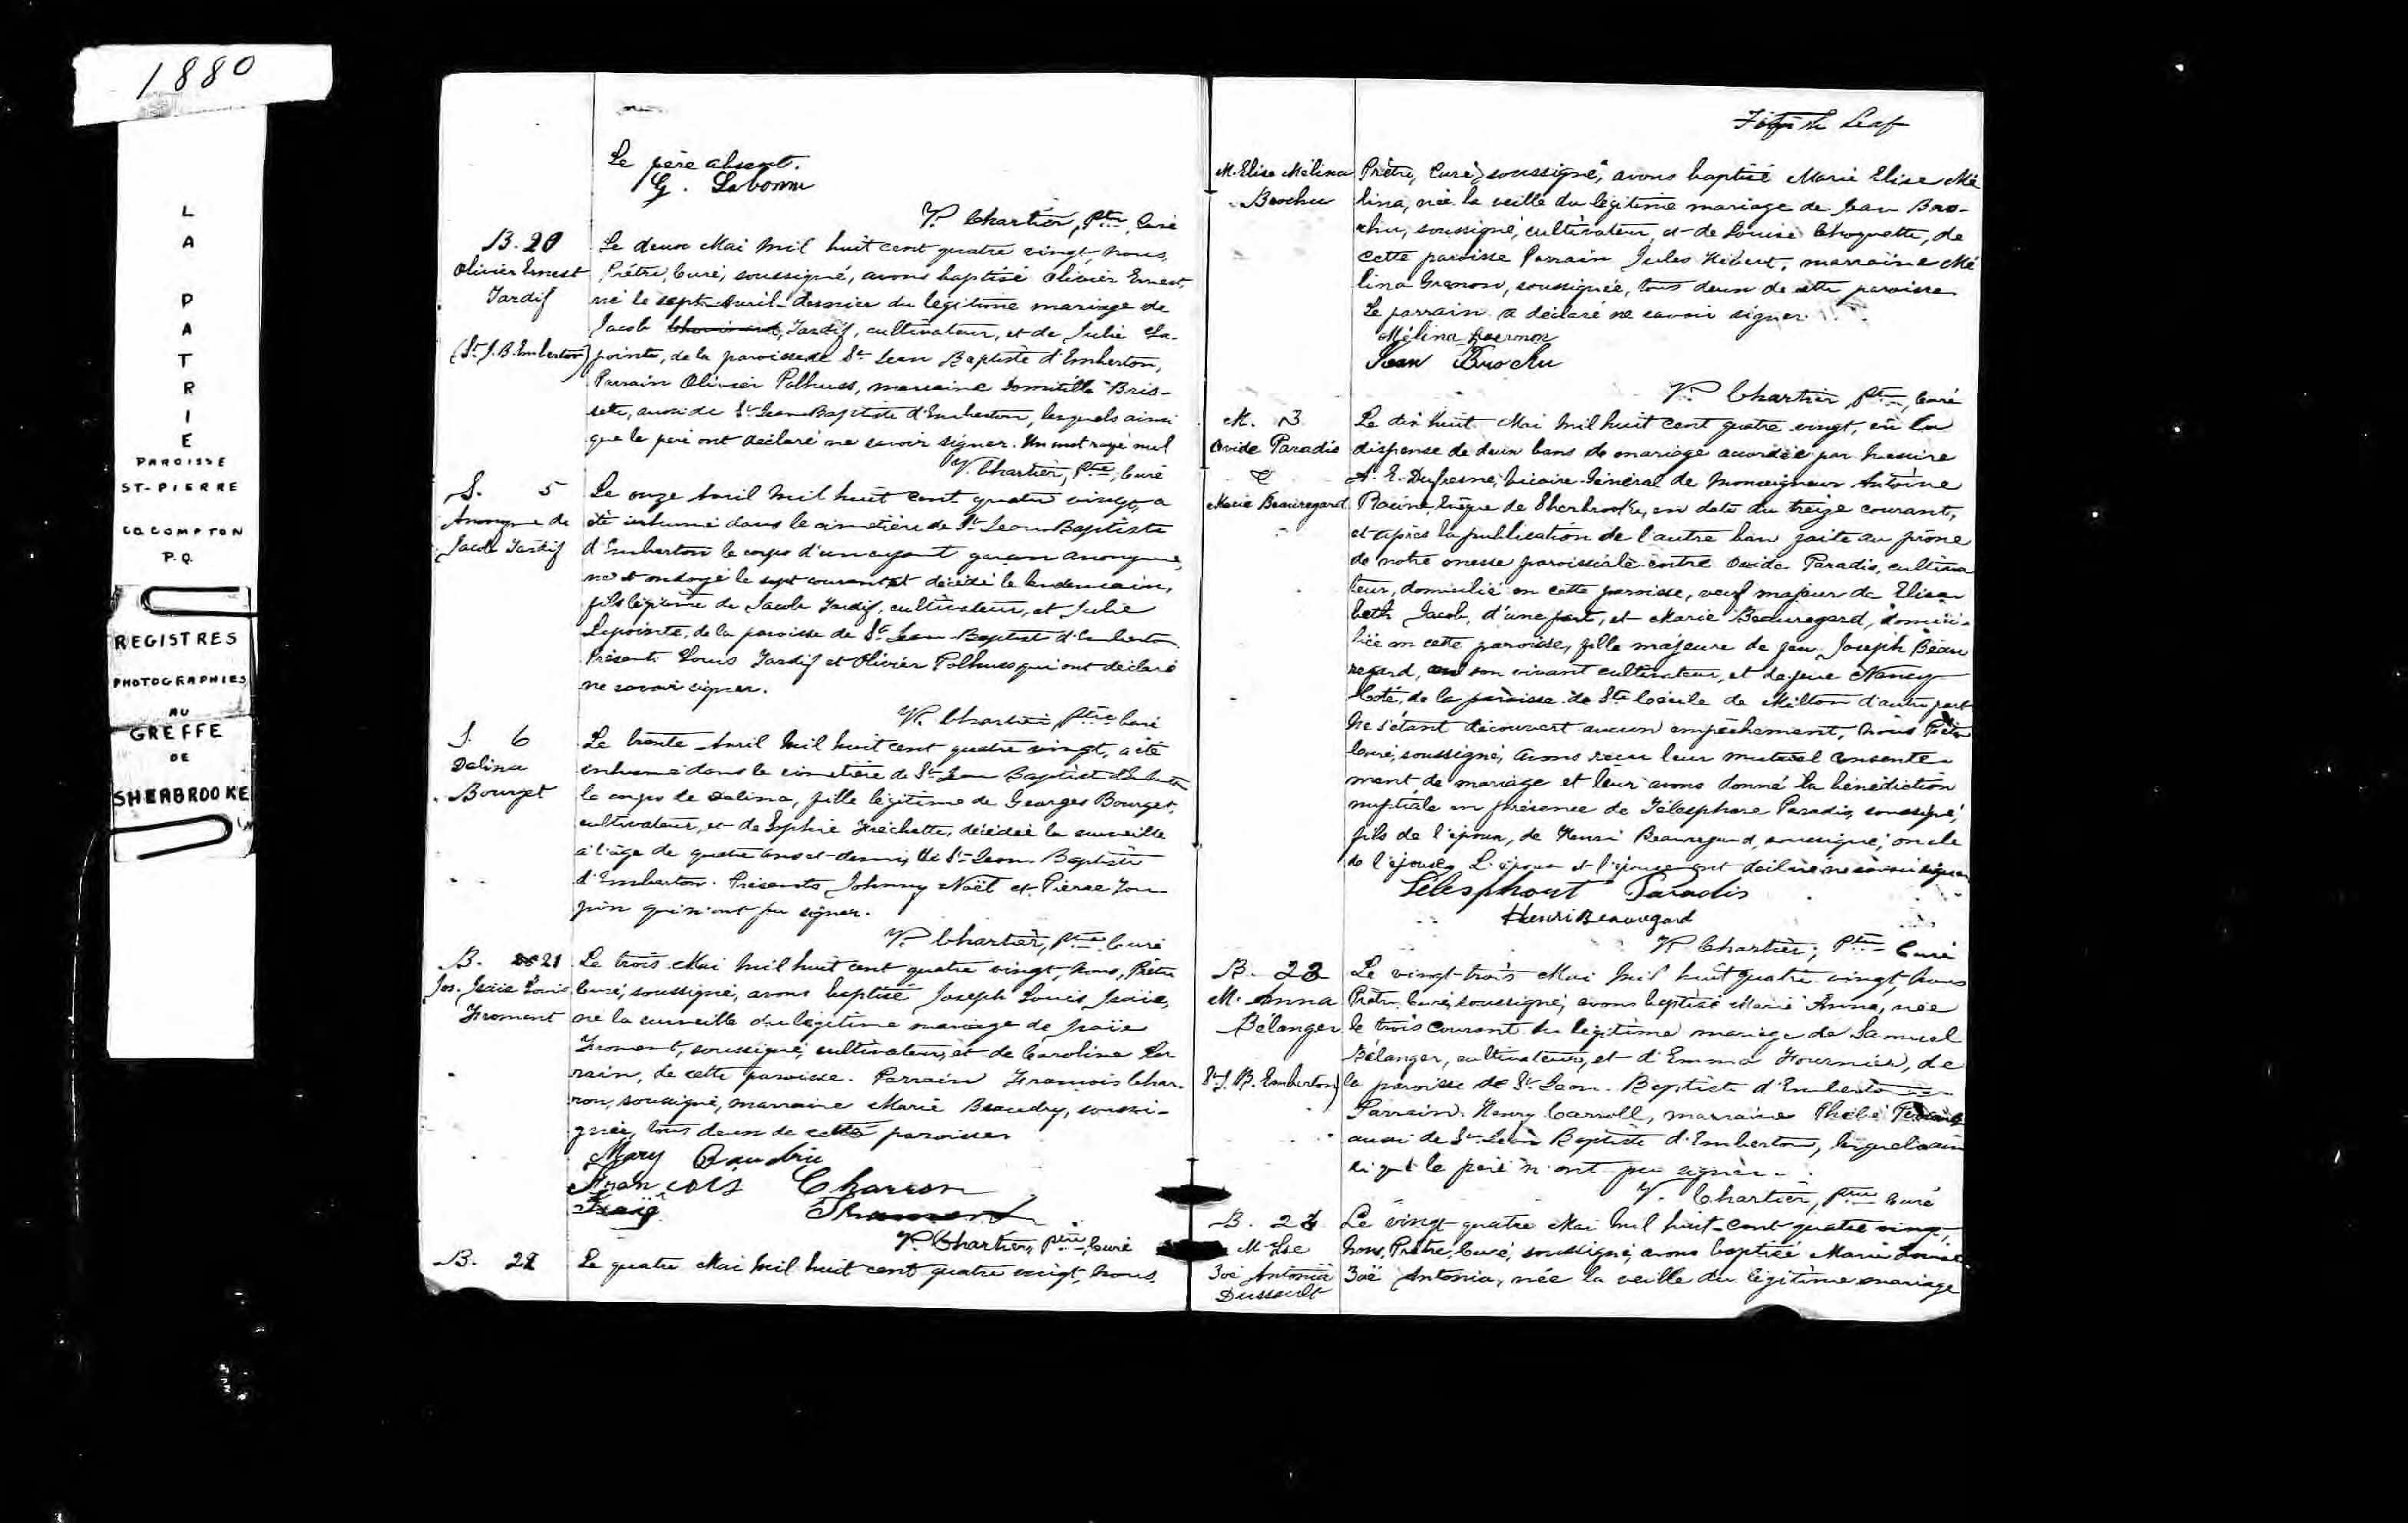 1880
LA PATRIE
PAROISSE
ST-PIERRE
CO. COMPTON
P.Q.
REGISTRES
PHOTOGRAPHIES
AU
GREFFE
DE
SHERBROOKE
Le père absent.
G. Labonne
V. Chartier, Ptre, Curé
B. 20
Olivier Ernest
Tardif
(St J. B. Emberton)
Le deux Mai mil huit cent quatre vingt, nous,
Prêtre, Curé, soussigné, avons baptisé Olivier Ernest,
né le sept Avril dernier du légitime mariage de
Jacob Chouinard, Tardif, cultivateur, et de Julie La-
pointe, de la paroisse de St Jean Baptiste d'Emberton,
Parrain Olivier Polhuss, marraine Domitille Bris-
sette, aussi de St Jean Baptiste d'Emberton, lesquels ainsi
que le père ont déclaré ne savoir signer. Un mot rayé nul
V. Chartier, Ptre, Curé
S. 5
Anonyme de
Jacob Tardif
Le onze Avril mil huit cent quatre vingt, a
été inhumé dans le cimetière de St Jean Baptiste
d'Emberton le corps d'un garçon anonyme,
né et ondoyé le sept courant et décédé le lendemain,
fils légitime de Jacob Tardif, cultivateur, et Julie
Lapointe, de la paroisse de St Jean-Baptiste d'Emberton
Présents Louis Tardif et Olivier Polhuss qui ont déclaré
ne savoir signer.
V. Chartier, Ptre Curé
S. 6
Dalina
Bourget
Le trente Avril mil huit cent quatre vingt, a été
inhumé dans le cimetière de St Jean Baptiste d'Emberton
le corps de Dalina, fille légitime de Georges Bourget,
cultivateur, et de Sophie Fréchette, décédée la surveille
à l'âge de quatre ans et demi, de St Jean Baptiste
d'Emberton. Présents Johnny Noël et Pierre
qui n'ont pu signer.
V. Chartier, Ptre Curé
B. 21
Jos. Isaïe Louis
Froment
Le trois Mai mil huit cent quatre vingt, nous, Prêtre
Curé, soussigné, avons baptisé Joseph Louis Isaïe,
né la surveille du légitime mariage de Isaïe
Froment, soussigné, cultivateur, et de Caroline Lor
rain, de cette paroisse. Parrain François Char-
ron, soussigné, marraine Marie Beaudry, soussi-
gnée, tous deux de cette paroisse
Mary Baudrie
François Charron
Isaïe Froment
V. Chartier, Ptre, Curé
B. 22
Le quatre Mai mil huit cent quatre vingt, nous,
Leaf
M. Elise Mélina
Brochu
Prêtre, Curé, soussigné, avons baptisé Marie Elise Mé
lina, née la veille du légitime mariage de Jean Bro-
chu, soussigné, cultivateur, et de Louise Choquette, de
cette paroisse Parrain Jules Hébert, marraine Mé
lina Grenon, soussignée, tous deux de cette paroisse
Le parrain a déclaré ne savoir signer
Mélina Grenon
Jean Brochu
V. Chartier Ptre, Curé
M. 3
Ovide Paradis
&
Marie Beauregard
Le dix huit Mai mil huit cent quatre vingt, vu la
dispense de deux bans de mariage accordée par Messire
A. E. Dufresne, Vicaire-Général de Monseigneur Antoine
Racine, Evêque de Sherbrooke, en date du treize courant,
et après la publication de l'autre ban faite au prône
de notre messe paroissiale entre Ovide Paradis, cultiva
teur, domicilié en cette paroisse, veuf majeur de Elisa-
beth Jacob, d'une part, et Marie Beauregard, domici-
liée en cette paroisse, fille majeure de feu Joseph Beau
regard, en son vivant cultivateur, et de feue Nancy
Coté, de la paroisse de Ste Cécile de Milton d'autre part
Ne s'étant découvert aucun empêchement, nous Prêtre
Curé, soussigné, avons reçu leur mutuel consente-
ment de mariage et leur avons donné la bénédiction
nuptiale en présence de Télesphore Paradis, soussigné,
fils de l'époux, de Henri Beauregard, soussigné, oncle
de l'épouse. L'époux et l'épouse ont déclaré ne savoir signer
Telesphore Paradis
Henri Beauregard
V. Chartier, Ptre Curé
B. 23
M. Anna
Bélanger
St J. B. Emberton)
Le vingt-trois Mai mil huit quatre vingt, nous
Prêtre, Curé, soussigné, avons baptisé Marie Anna, née
le trois courant du légitime mariage de Samuel
Bélanger, cultivateur, et d'Emma Fournier, de
la paroisse de St Jean-Baptiste d'Emberton
Parrain Henry Carroll, marraine Phébé
aussi de St Jean Baptiste d'Emberton, lesquels ain
si que le père n'ont pu signer.
V. Chartier, Ptre Curé
B. 24
M. Lse
Zoé Antonia
Dussault
Le vingt-quatre Mai mil huit-cent quatre vingt,
nous, Prêtre, Curé, soussigné, avons baptisé Marie Louise
Zoé Antonia, née la veille du légitime mariage